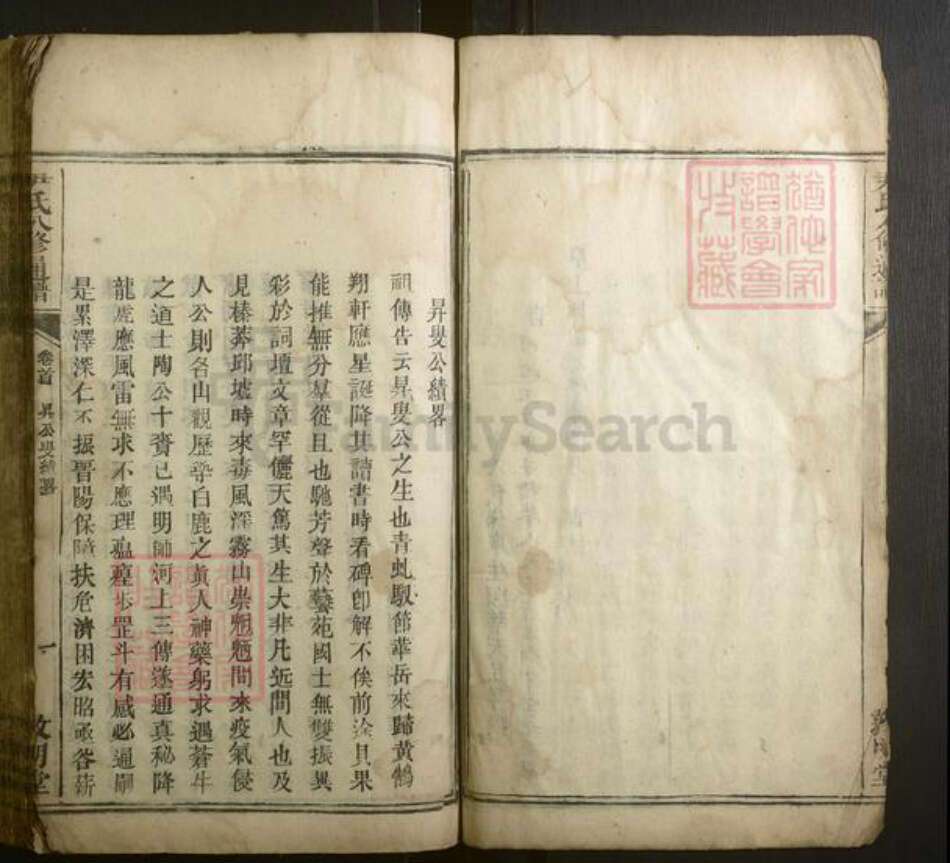 猶他家
譜學會
收藏
昇叟公績畧
祖傳告云昇叟公之生也青虬馭節華岳來歸黃鶴
翔軒應星誕降其讀書時看碑卽解不俟前淦具果
能推無分羣從且也馳芳聲於藝苑國士無雙振異
彩於詞壇文章罕儷天篤其生大非凡近間人也及
見榛莽邱墟時來毒風深霧山祟魍魎間來疫氣侵
人公則各山觀歷學白鹿之眞人神藥躬求遇蒼牛
之道士陶公十賚已遇明師河上三傳遂通真秘降
龍虎應風雷無求不應理瘟瘴步罡斗有感必通嗣
是累澤深仁不振晋陽保障扶危濟困宏昭亟荅薪
氏八修通譜
卷首
一
敦朋堂
FamilySearch